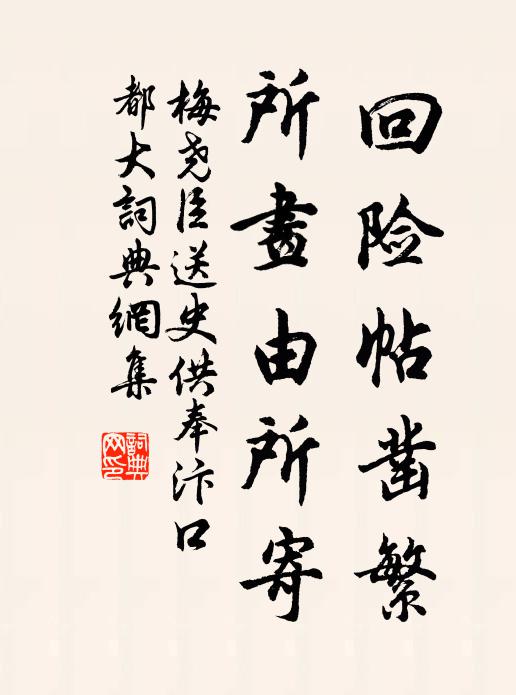 回险帖凿繁
所畫由所寄
梅尧臣送史供奉汴口
都大詞典網集
詞典网印